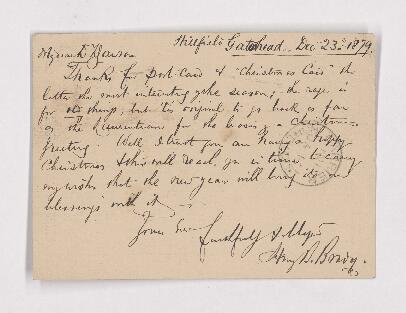 Hillfield Gateshead. Dec 23rd 1879.
Thanks for Post-Card & "Christmas Card" the
latter the most interesting of the season; the rage is
for things, but 'tis original to go back as far
as the for the basis of a Christmas
greeting. Well, I trust you are having a happy
Christmas & this will reach you in time to carry
my wishes that the new year will bring its own
blessings with it.
Yours
faithfully &